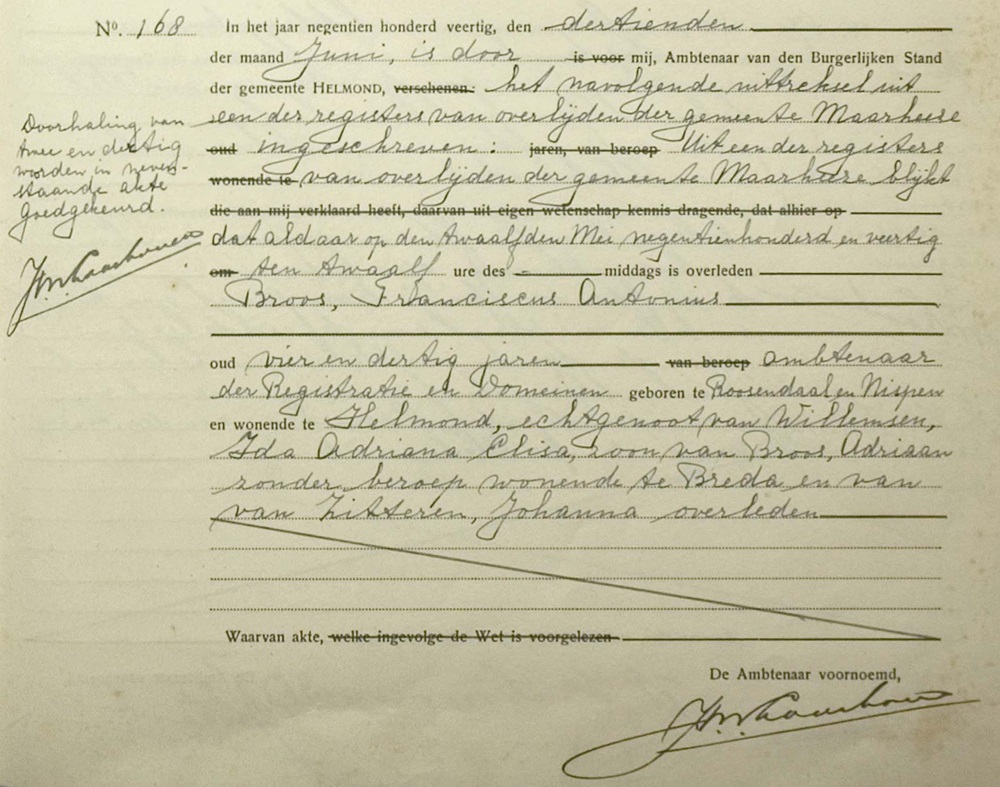 No. 168 In het jaar negentien honderd veertig, den dertienden
der maand Juni, is door is voor mij, Ambtenaar van den Burgerlijken Stand
der gemeente HELMOND, verschenen: het navolgende uittreksel uit
een der registers van overlijden der gemeente Maarheeze
oud ingeschreven: jaren, van beroep Uit een der registers
wonende te van overlijden der gemeente Maarheeze blijkt
die aan mij verklaard heeft, daarvan uit eigen wetenschap kennis dragende, dat alhier op
dat aldaar op den twaalfden Mei negentienhonderd en veertig
om ten twaalf ure des middags is overleden
Broos, Franciscus Antonius
oud vier en dertig jaren van beroep ambtenaar
der Registratie en Domeinen geboren te Roosendaal en Nispen
en wonende te Helmond, echtgenoot van Willemsen,
Ida Adriana Elisa, zoon van Broos, Adriaan
zonder beroep wonende te Breda en van
van Zitteren, Johanna overleden
Waarvan akte, welke ingevolge de Wet is voorgelezen
De Ambtenaar voornoemd,
Doorhaling van
twee en dertig
woorden in neven-
staande akte
goedgekeurd.